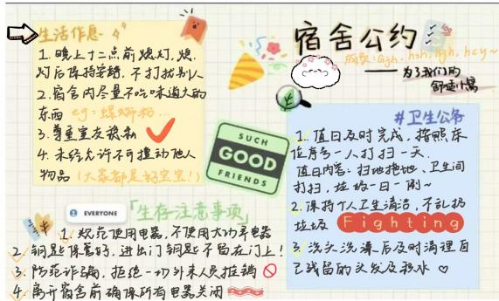 生活作息
1. 晚上十二点前熄灯,熄
灯后保持安静,不打扰别人
2. 宿舍内尽量不吃味道大的
东西 eg:螺蛳粉...
3. 尊重室友隐私
4. 未经允许不可擅动他人
物品(大家都是好宝宝!)
宿舍公约
为了我们的
舒适小窝
#卫生公务
1. 值日及时完成,按照床
位序号一人打扫一天.
值日内容:扫地拖地、卫生间
打扫,垃圾一日一倒~
2. 保持个人卫生清洁,不乱扔
垃圾 Fighting
3. 洗头洗澡后及时清理自
己残留的头发及积水
SUCH
GOOD
FRIENDS
EVERYONE
「生存注意事项」
1. 规范使用电器,不使用大功率电器
2. 钥匙保管好,进出门钥匙不留在门上!
3. 防范诈骗,拒绝一切外来人员推销
4. 离开宿舍前确保所有电器关闭